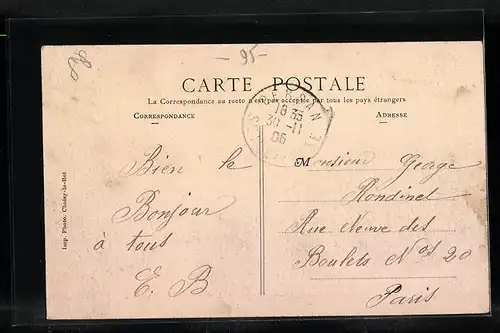 - 95 -
CARTE POSTALE
La Correspondance au recto n'est pas acceptée par tous les pays étrangers
CORRESPONDANCE
ADRESSE
PERSAN
18 35
30 - 11
06
Bien le
Bonjour
à tous
E. B
Monsieur George
Rondinet
Rue Neuve des
Boulets Nos 20
Paris
Imp. Photo. Choisy-le-Roi